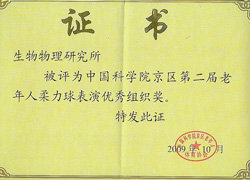 证书
生物物理研究所
被评为中国科学院京区第二届老
年人柔力球表演优秀组织奖。
特发此证
2009年10月